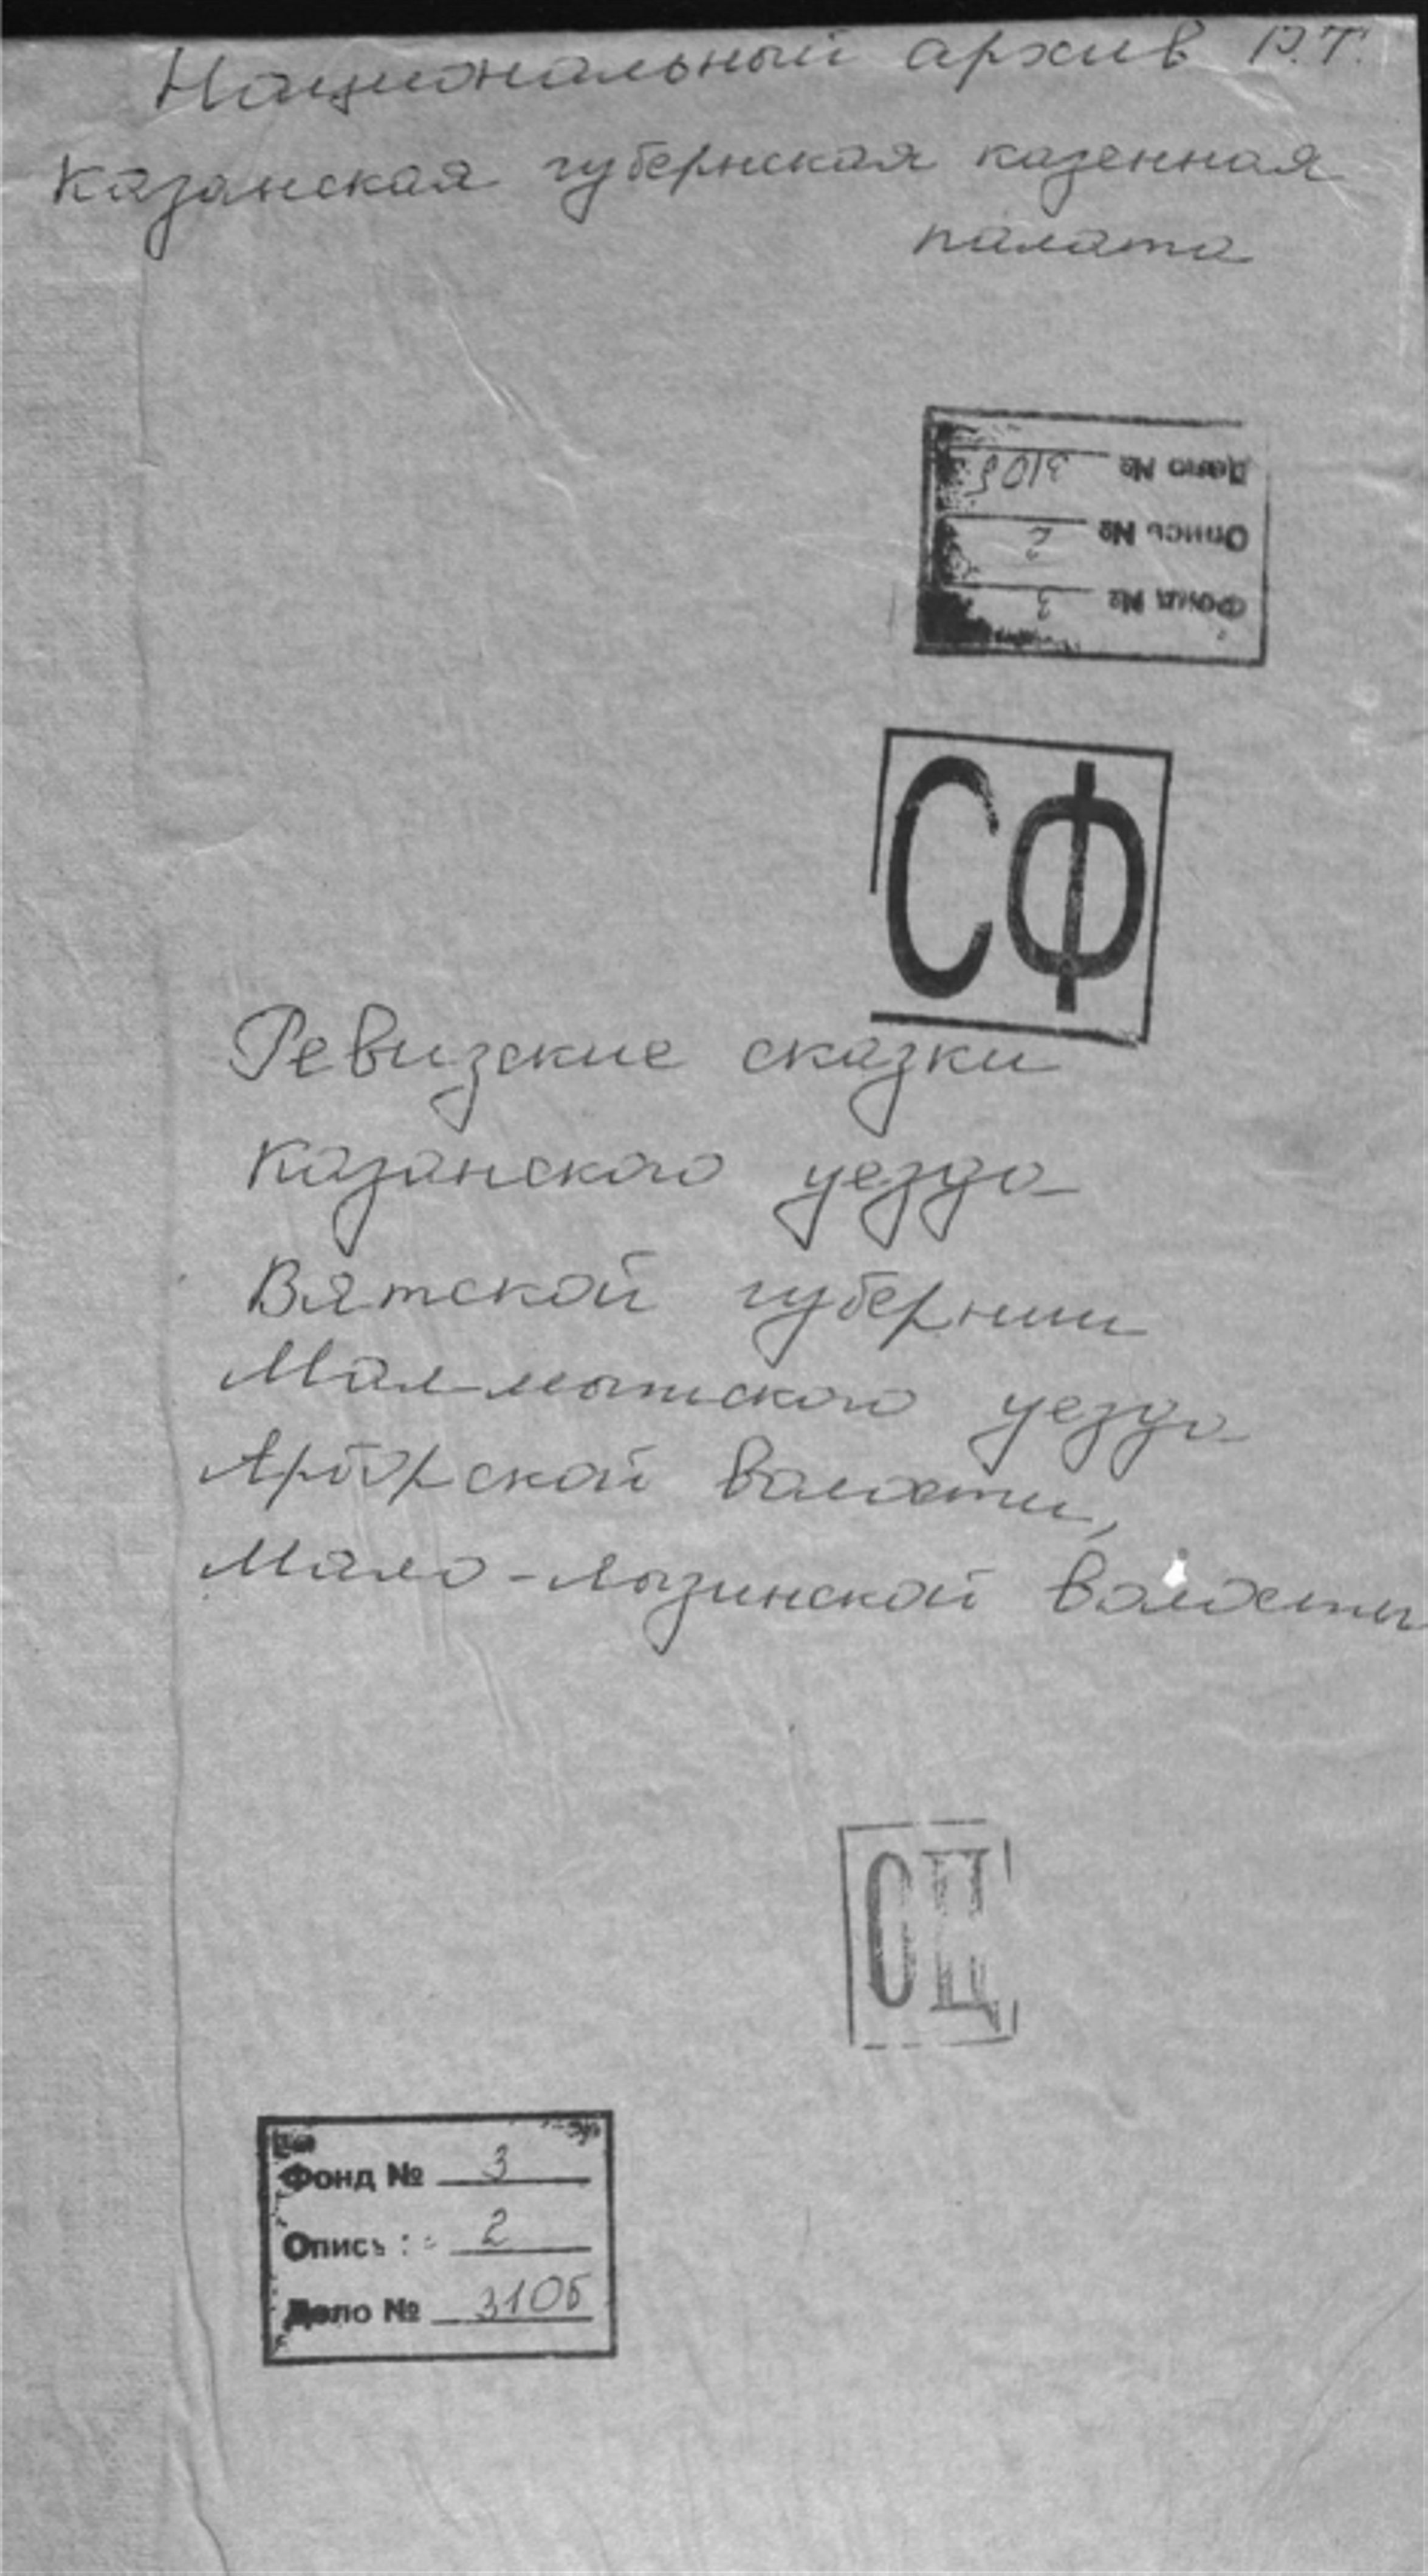 Национальный архив Р.Т.
Казанская губернская казенная
палата
Дело № 3105
Опись № 2
Фонд № 3
СФ
Ревизские сказки
Казанского уезда
Вятской губернии
Малмыжского уезда
Арборской волости,
Мало-Лызинской волости
СЦ
Фонд № 3
Опись : 2
Дело № 3105